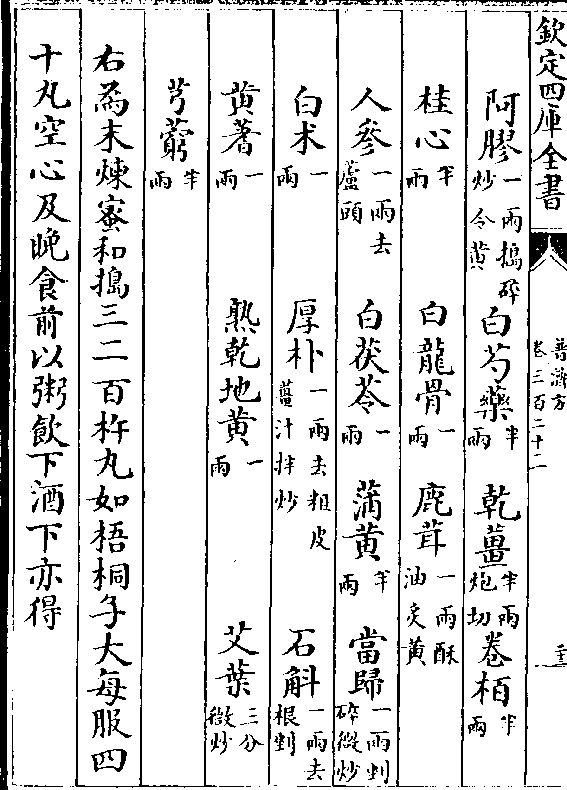 欽定四庫全書
普濟方
卷三百二十二
阿膠一兩搗碎炒令黃 白芍藥半兩 乾薑半兩炮切 卷栢半兩
桂心半兩 白龍骨一兩 鹿茸一兩酥油炙黃
人參一兩去蘆頭 白茯苓一兩 蒲黃半兩 當歸一兩剉碎微炒
白术一兩 厚朴一兩去粗皮薑汁拌炒 石斛一兩去根剉
黃蓍一兩 熟乾地黃一兩 艾葉三分微炒
芎藭半兩
右為末煉蜜和搗三二百杵丸如梧桐子大每服四
十丸空心及晚食前以粥飲下酒下亦得